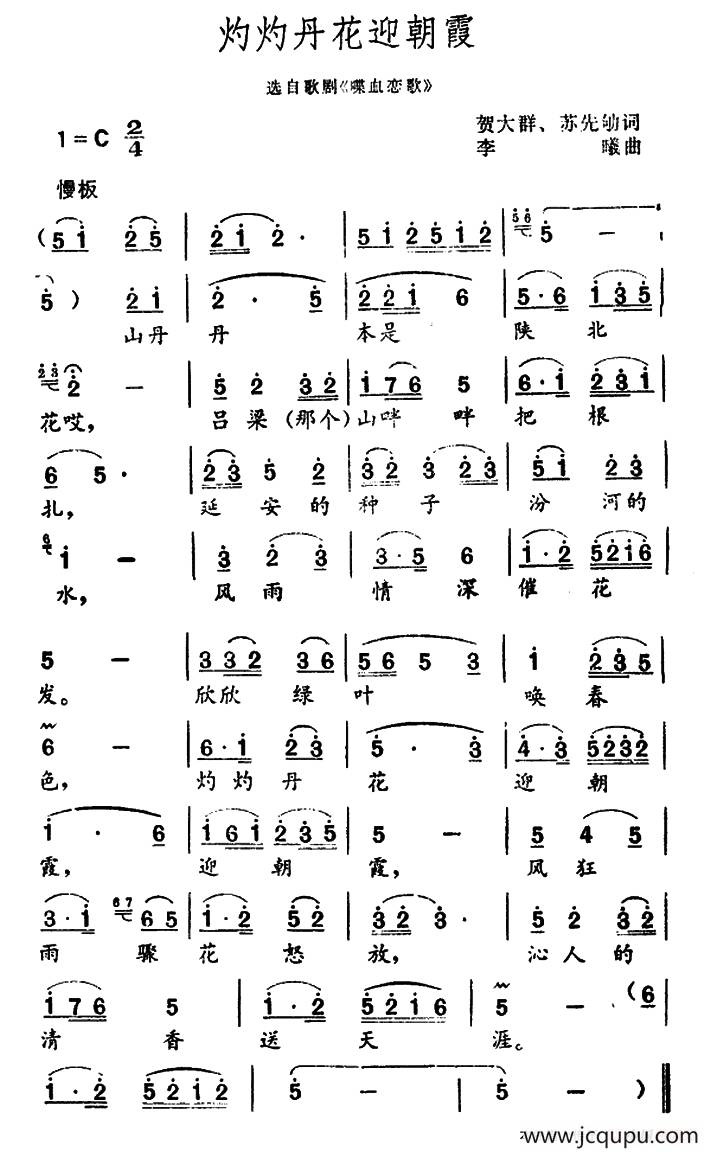 灼灼丹花迎朝霞
选自歌剧《喋血恋歌》
1=C 2/4
贺大群、苏先劬词
李 曦曲
慢板
(5 1 2 5 | 2 1 2 · | 5 1 2 5 1 2 | 5 6 5 —
5 ) 2 1 | 2 · 5 | 2 2 1 6 | 5 · 6 1 3 5
山丹 丹 本是 陕 北
2 3 2 — | 5 2 3 2 | 1 7 6 5 | 6 · 1 2 3 1
花哎, 吕梁(那个)山畔 畔 把 根
6 5 · | 2 3 5 2 | 3 2 3 2 3 | 5 1 2 3
扎, 延 安 的 种 子 汾 河的
6 1 — | 3 2 · 3 | 3 · 5 6 | 1 · 2 5 2 1 6
水, 风雨 情 深 催 花
5 — | 3 3 2 3 6 | 5 6 5 3 | 1 2 3 5
发。 欣欣 绿 叶 唤 春
6 — | 6 · 1 2 3 | 5 · 3 | 4 · 3 5 2 3 2
色, 灼灼 丹 花 迎 朝
1 · 6 | 1 6 1 2 3 5 | 5 — | 5 4 5
霞, 迎 朝 霞, 风 狂
3 · 1 6 7 6 5 | 1 · 2 5 2 | 3 2 3 · | 5 2 3 2
雨 骤 花 怒 放, 沁人的
1 7 6 5 | 1 · 2 5 2 1 6 | 5 — (6
清 香 送 天 涯。
1 · 2 5 2 1 2 | 5 — | 5 — )
www.jcqupu.com